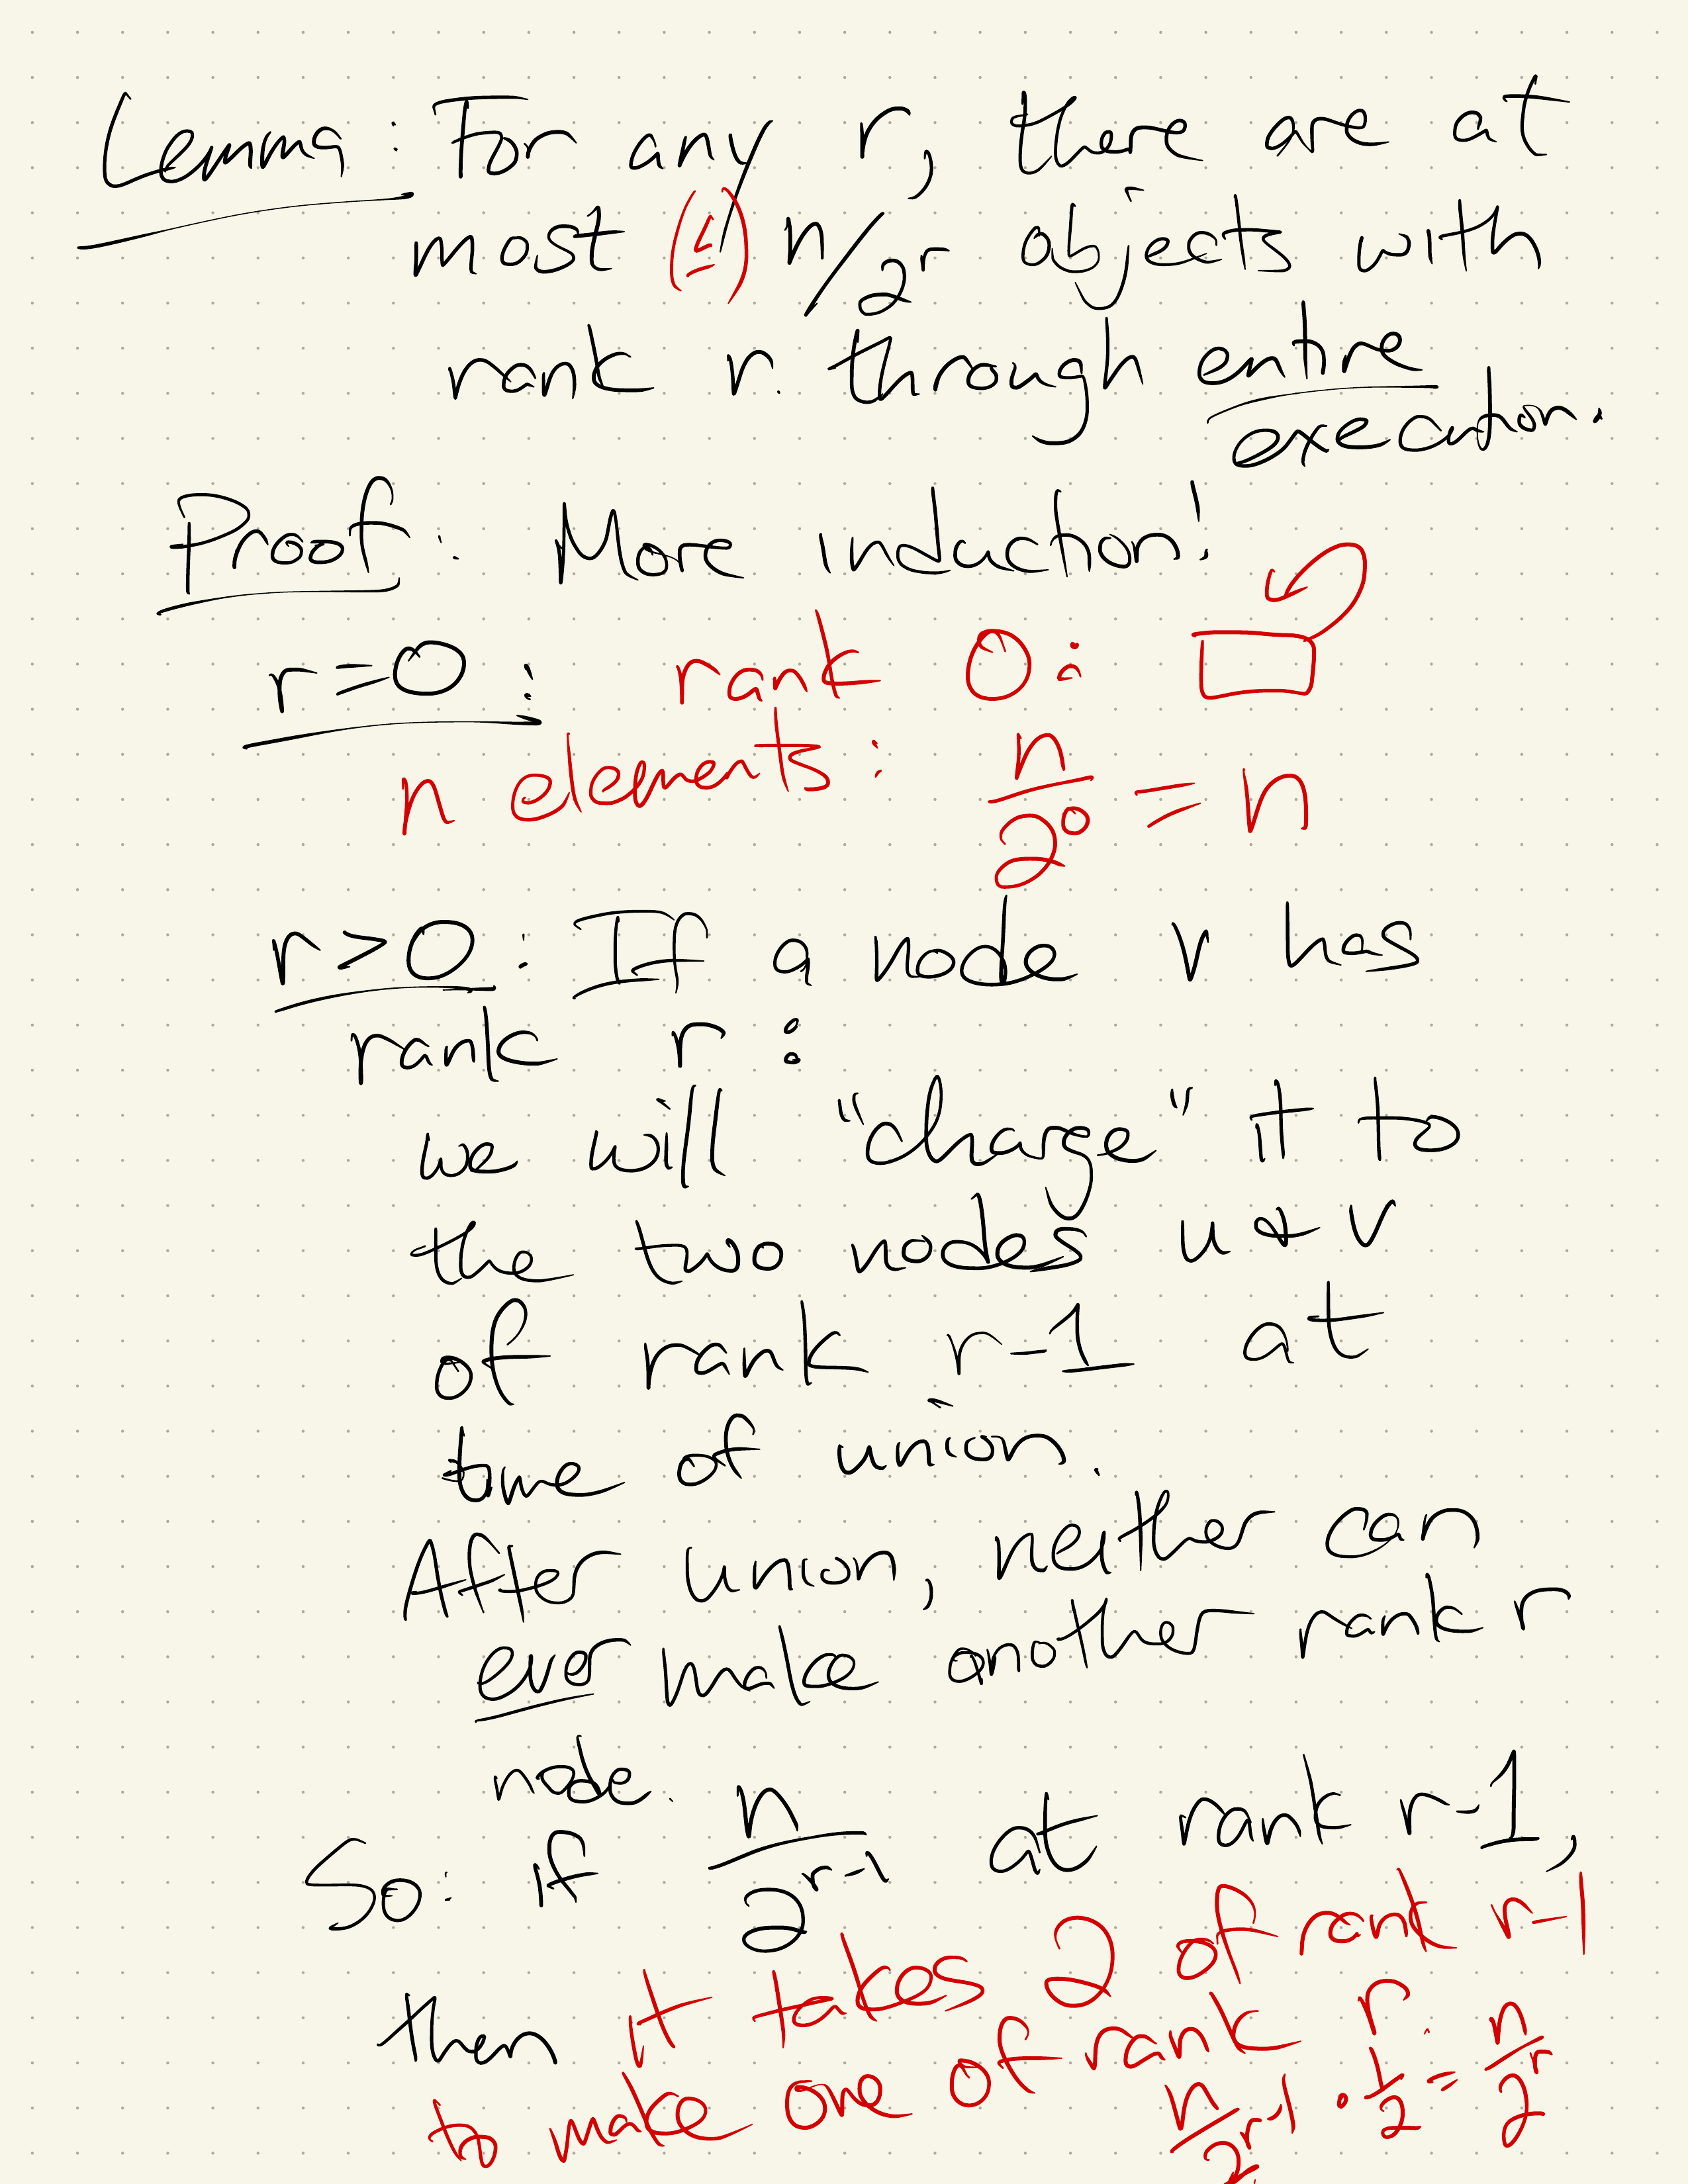 Lemma: For any r, there are at
most (≤) n/2^r objects with
rank r through entire
execution.
Proof: More induction!
r=0: rank 0:
n elements: n/2^0 = n
r>0: If a node v has
rank r:
we will "charge" it to
the two nodes u & v
of rank r-1 at
time of union.
After union, neither can
ever make another rank r
node.
So: if n/2^(r-1) at rank r-1,
then it takes 2 of rank r-1
to make one of rank r.
n/2^(r-1) · 1/2 = n/2^r